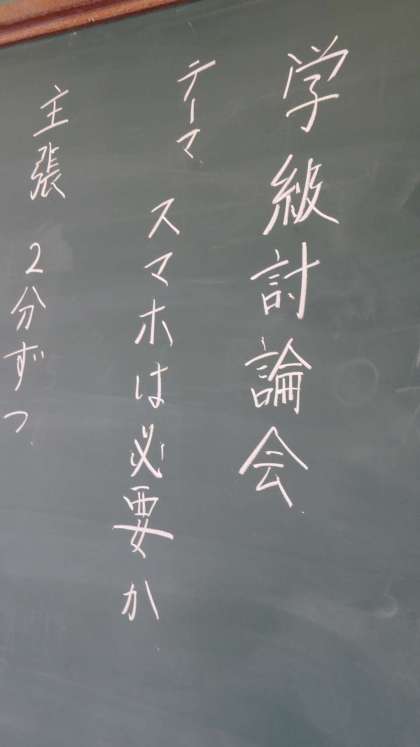 学級討論会
テーマ
スマホは必要か
主張 2分ずつ